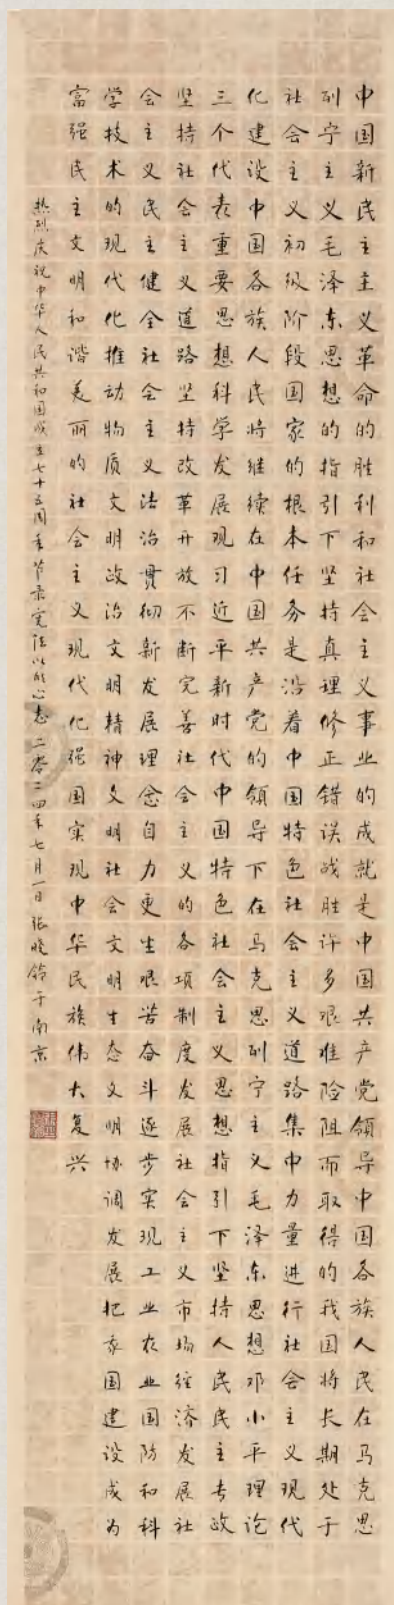 中国新民主主义革命的胜利和社会主义事业的成就是中国共产党领导中国各族人民在马克思
列宁主义毛泽东思想的指引下坚持真理修正错误战胜许多艰难险阻而取得的我国将长期处于
社会主义初级阶段国家的根本任务是沿着中国特色社会主义道路集中力量进行社会主义现代
化建设中国各族人民将继续在中国共产党的领导下在马克思列宁主义毛泽东思想邓小平理论
三个代表重要思想科学发展观习近平新时代中国特色社会主义思想指引下坚持人民民主专政
坚持社会主义道路坚持改革开放不断完善社会主义的各项制度发展社会主义市场经济发展社
会主义民主健全社会主义法治贯彻新发展理念自力更生艰苦奋斗逐步实现工业农业国防和科
学技术的现代化推动物质文明政治文明精神文明社会文明生态文明协调发展把我国建设成为
富强民主文明和谐美丽的社会主义现代化强国实现中华民族伟大复兴
热烈庆祝中华人民共和国成立七十五周年节录宪法以心志二零二四年七月一日张晓于南京